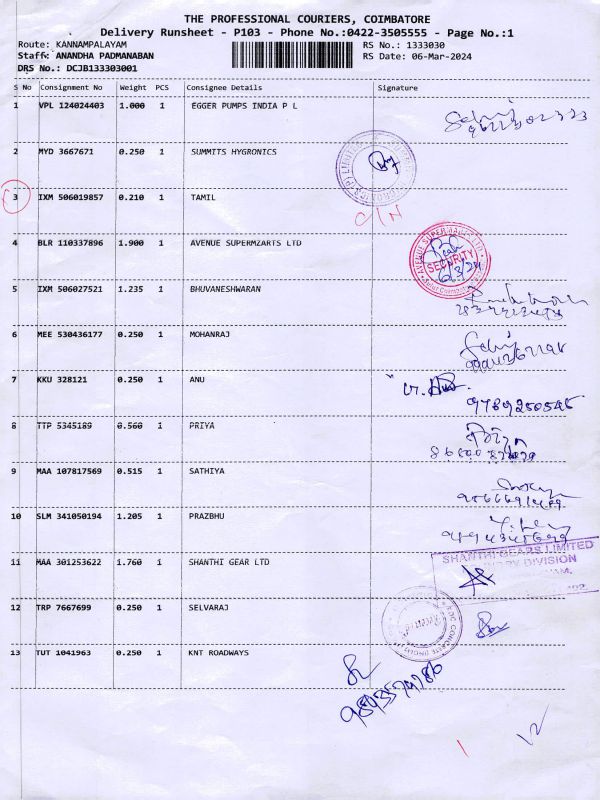 THE PROFESSIONAL COURIERS, COIMBATORE
Delivery Runsheet - P103 - Phone No.:0422-3505555 - Page No.:1
Route: KANNAMPALAYAM RS No.: 1333030
Staff: ANANDHA PADMANABAN RS Date: 06-Mar-2024
DRS No.: DCJB133303001
S No Consignment No Weight PCS Consignee Details Signature
1 VPL 124024403 1.000 1 EGGER PUMPS INDIA P L
2 MYD 3667671 0.250 1 SUMMITS HYGRONICS
3 IXM 506019857 0.210 1 TAMIL
C/N
4 BLR 110337896 1.900 1 AVENUE SUPERMZARTS LTD
AVENUE SUPERMARTS LTD
SECURITY
6/3/24
5 IXM 506027521 1.235 1 BHUVANESHWARAN
6 MEE 530436177 0.250 1 MOHANRAJ
7 KKU 328121 0.250 1 ANU
9789250545
8 TTP 5345189 0.560 1 PRIYA
9 MAA 107817569 0.515 1 SATHIYA
10 SLM 341050194 1.205 1 PRAZBHU
11 MAA 301253622 1.760 1 SHANTHI GEAR LTD
SHANTHI GEARS LIMITED
DIVISION
12 TRP 7667699 0.250 1 SELVARAJ
13 TUT 1041963 0.250 1 KNT ROADWAYS
12